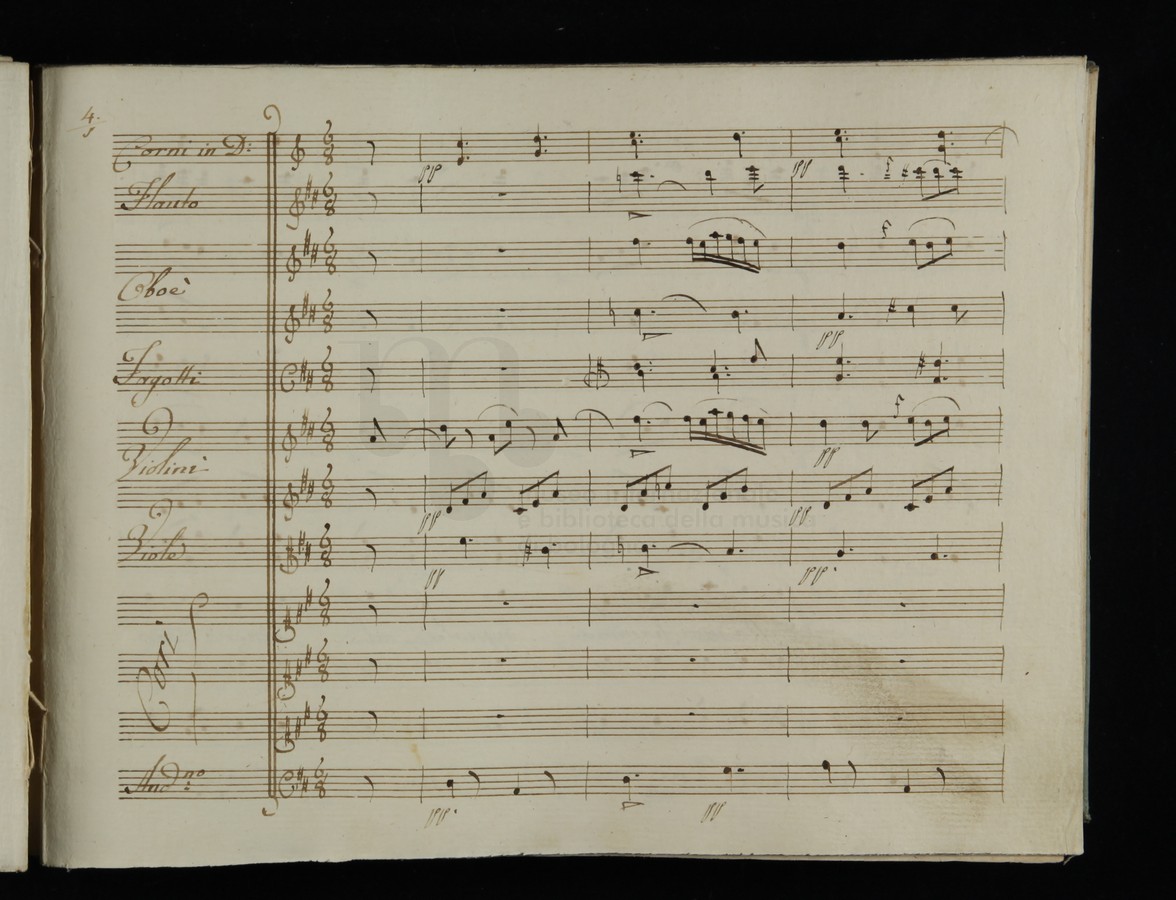 4.
Corni in D:
pp pp
Flauto
Oboè
pp
Fagotti
Violini
pp
pp pp
Viole
pp pp.
Cori
And.no
pp. pp
museo internazionale
e biblioteca della musica